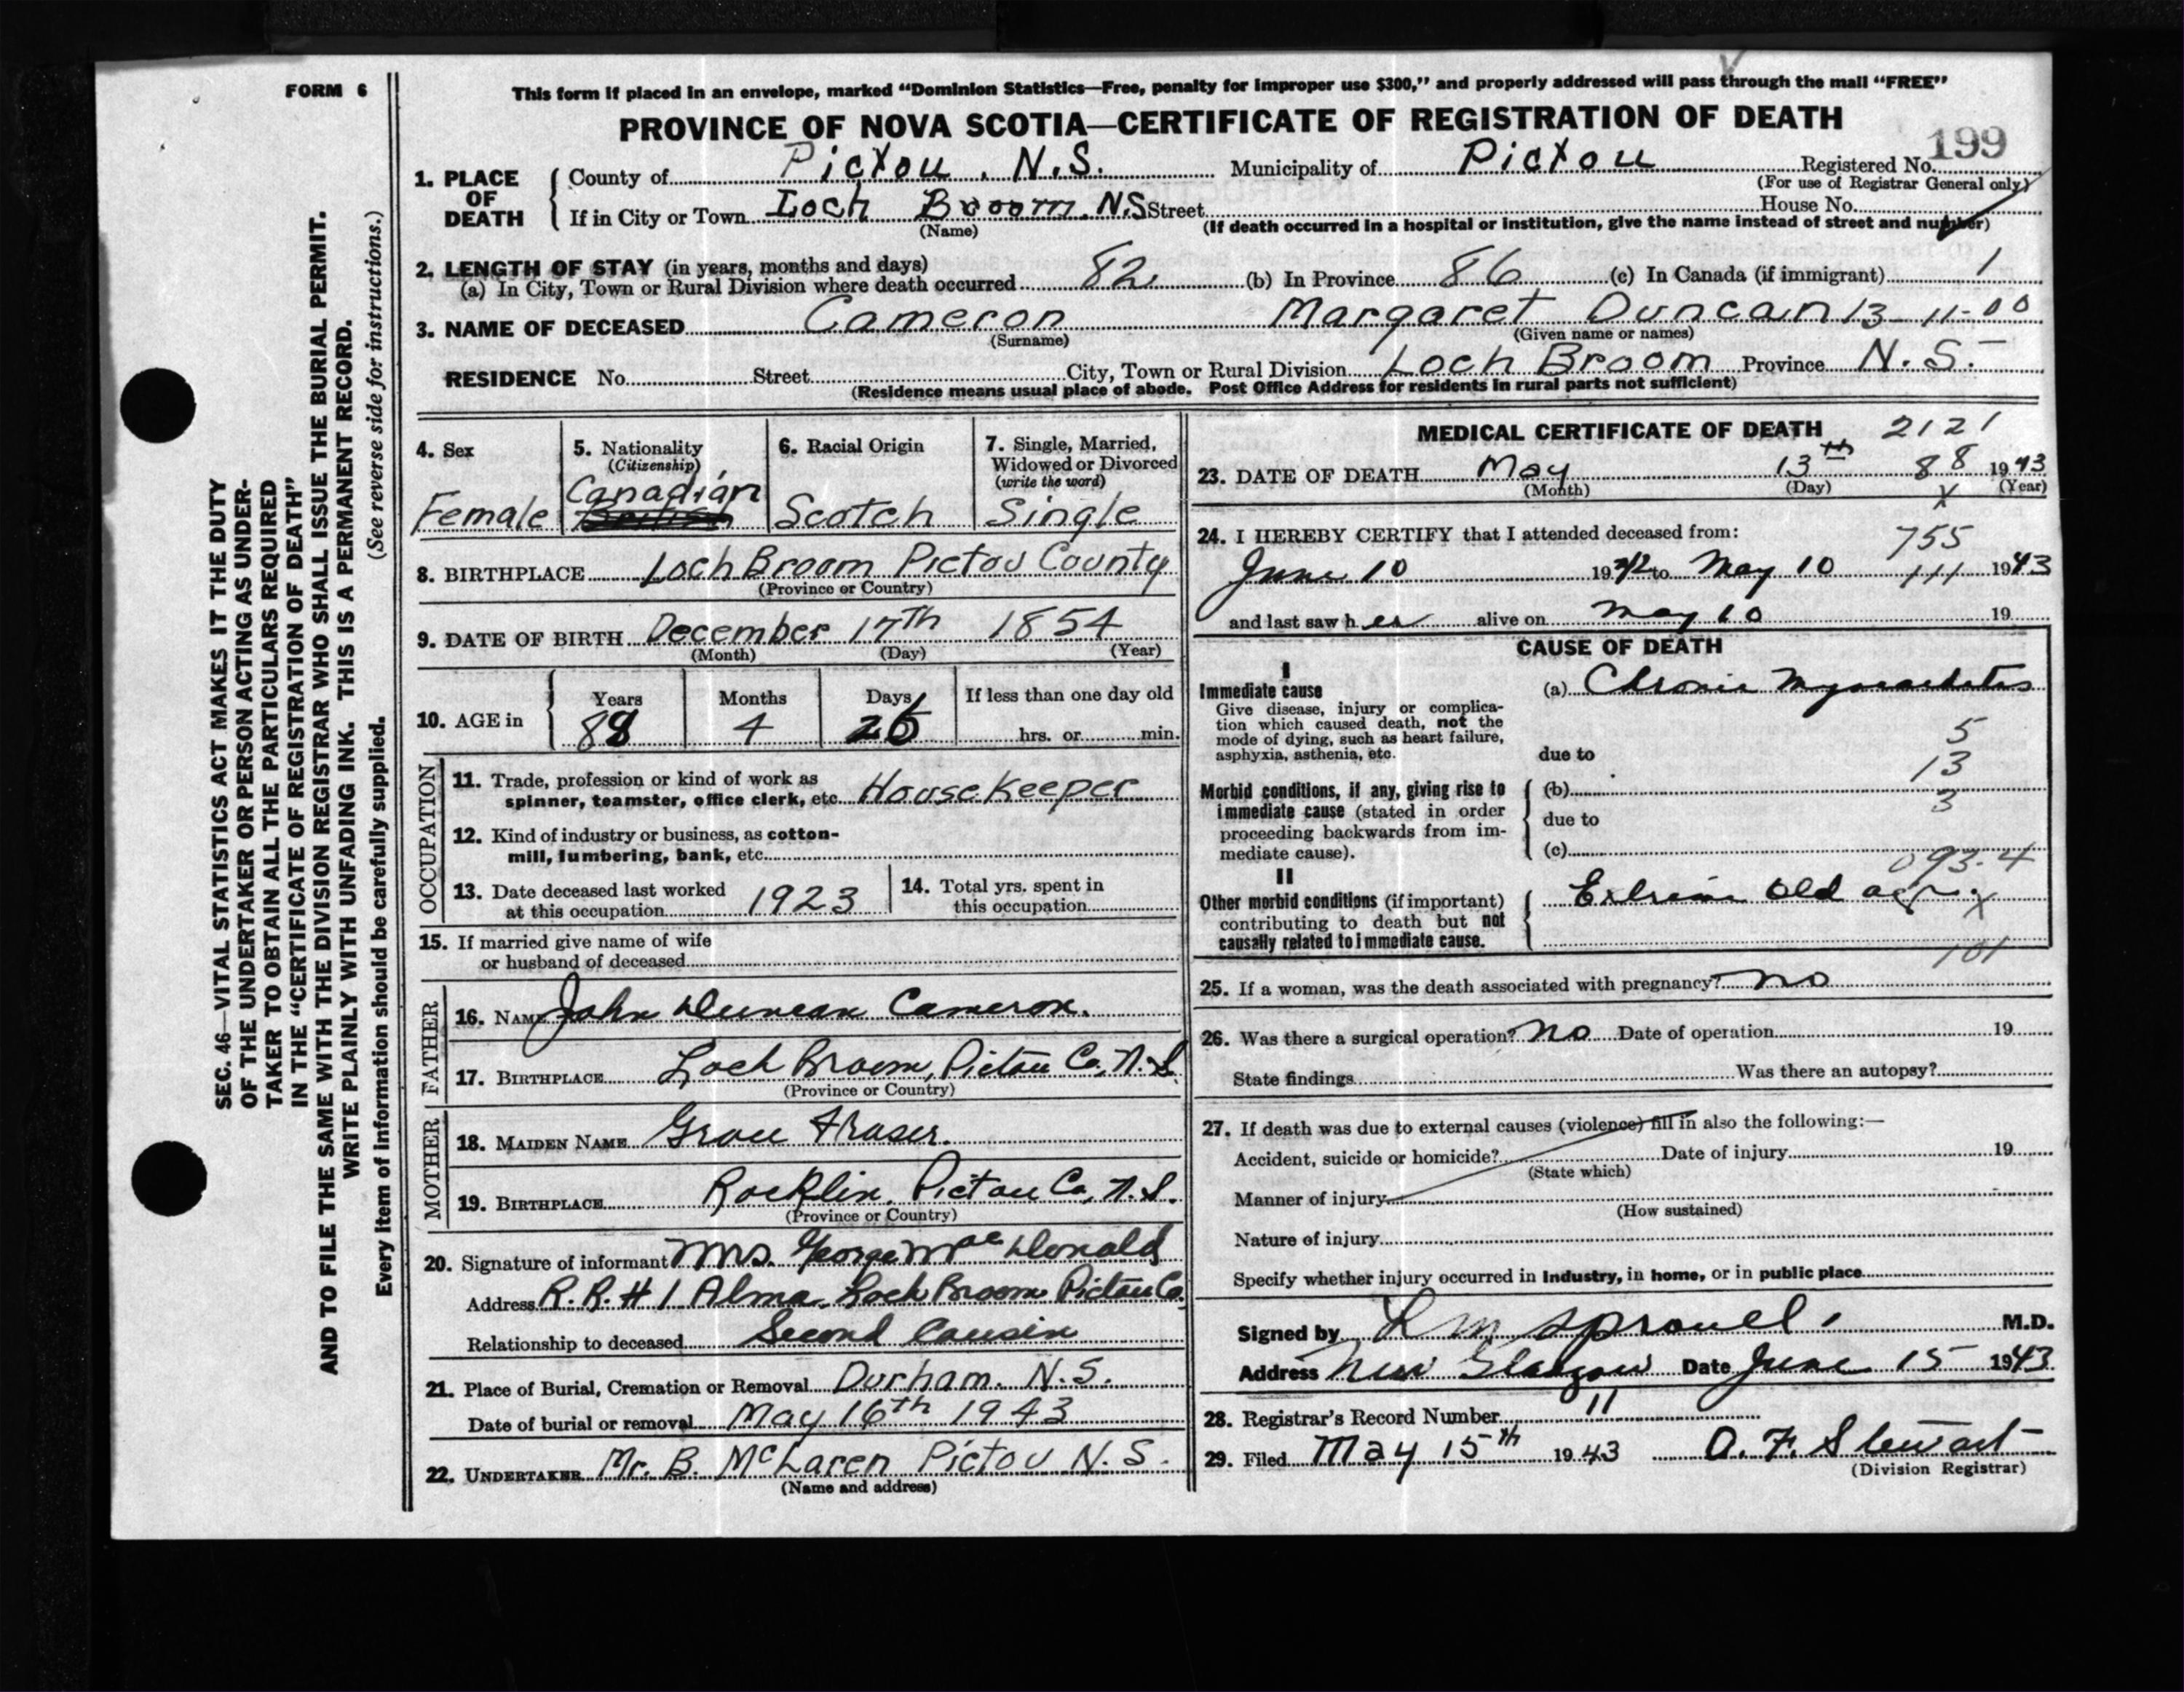 FORM 6
This form if placed in an envelope, marked "Dominion Statistics—Free, penalty for improper use $300," and properly addressed will pass through the mail "FREE"
PROVINCE OF NOVA SCOTIA—CERTIFICATE OF REGISTRATION OF DEATH
199
1. PLACE OF DEATH
County of Pictou, N.S. Municipality of Pictou Registered No.
(For use of Registrar General only)
If in City or Town Loch Broom, N.S Street House No.
(Name) (If death occurred in a hospital or institution, give the name instead of street and number)
2. LENGTH OF STAY (in years, months and days)
(a) In City, Town or Rural Division where death occurred 82 (b) In Province 86 (c) In Canada (if immigrant) 1
3. NAME OF DECEASED Cameron Margaret Duncan 13-11-00
(Surname) (Given name or names)
RESIDENCE No. Street City, Town or Rural Division Loch Broom Province N.S.
(Residence means usual place of abode. Post Office Address for residents in rural parts not sufficient)
4. Sex
Female
5. Nationality
(Citizenship)
Canadian
British
6. Racial Origin
Scotch
7. Single, Married,
Widowed or Divorced
(write the word)
Single
8. BIRTHPLACE Loch Broom Pictou County
(Province or Country)
9. DATE OF BIRTH December 17th 1854
(Month) (Day) (Year)
10. AGE in
Years Months Days If less than one day old
88 4 26 hrs. or min.
OCCUPATION
11. Trade, profession or kind of work as
spinner, teamster, office clerk, etc. Housekeeper
12. Kind of industry or business, as cotton-
mill, lumbering, bank, etc.
13. Date deceased last worked
at this occupation 1923
14. Total yrs. spent in
this occupation
15. If married give name of wife
or husband of deceased
FATHER
16. NAME John Duncan Cameron.
17. BIRTHPLACE Loch Broom, Pictou Co, N.S.
(Province or Country)
MOTHER
18. MAIDEN NAME Grace Fraser.
19. BIRTHPLACE Rocklin, Pictou Co, N.S.
(Province or Country)
20. Signature of informant Mrs. George MacDonald
Address R.R. # 1 Alma, Loch Broom Pictou Co.
Relationship to deceased Second Cousin
21. Place of Burial, Cremation or Removal Durham. N.S.
Date of burial or removal May 16th 1943
22. UNDERTAKER Mr. B. McLaren Pictou N.S.
(Name and address)
MEDICAL CERTIFICATE OF DEATH 2121
23. DATE OF DEATH May 13th 88 1943
(Month) (Day) X (Year)
24. I HEREBY CERTIFY that I attended deceased from: 755
June 10 1942 to May 10 111 1943
and last saw her alive on May 10 19
CAUSE OF DEATH
I
Immediate cause
Give disease, injury or complica-
tion which caused death, not the
mode of dying, such as heart failure,
asphyxia, asthenia, etc.
(a) Chronic Myocarditis
5
due to
13
Morbid conditions, if any, giving rise to
immediate cause (stated in order
proceeding backwards from im-
mediate cause).
(b)
3
due to
(c)
093.4
II
Other morbid conditions (if important)
contributing to death but not
causally related to immediate cause.
Extreme old age. X
101
25. If a woman, was the death associated with pregnancy? no
26. Was there a surgical operation? No Date of operation 19
State findings Was there an autopsy?
27. If death was due to external causes (violence) fill in also the following:—
Accident, suicide or homicide? Date of injury 19
(State which)
Manner of injury
(How sustained)
Nature of injury
Specify whether injury occurred in Industry, in home, or in public place
Signed by L M Sprouel M.D.
Address New Glasgow Date June 15 1943
28. Registrar's Record Number 11
29. Filed May 15th 1943 A. F. Stewart
(Division Registrar)
SEC. 46—VITAL STATISTICS ACT MAKES IT THE DUTY
OF THE UNDERTAKER OR PERSON ACTING AS UNDER-
TAKER TO OBTAIN ALL THE PARTICULARS REQUIRED
IN THE "CERTIFICATE OF REGISTRATION OF DEATH"
AND TO FILE THE SAME WITH THE DIVISION REGISTRAR WHO SHALL ISSUE THE BURIAL PERMIT.
WRITE PLAINLY WITH UNFADING INK. THIS IS A PERMANENT RECORD.
Every item of information should be carefully supplied. (See reverse side for instructions.)